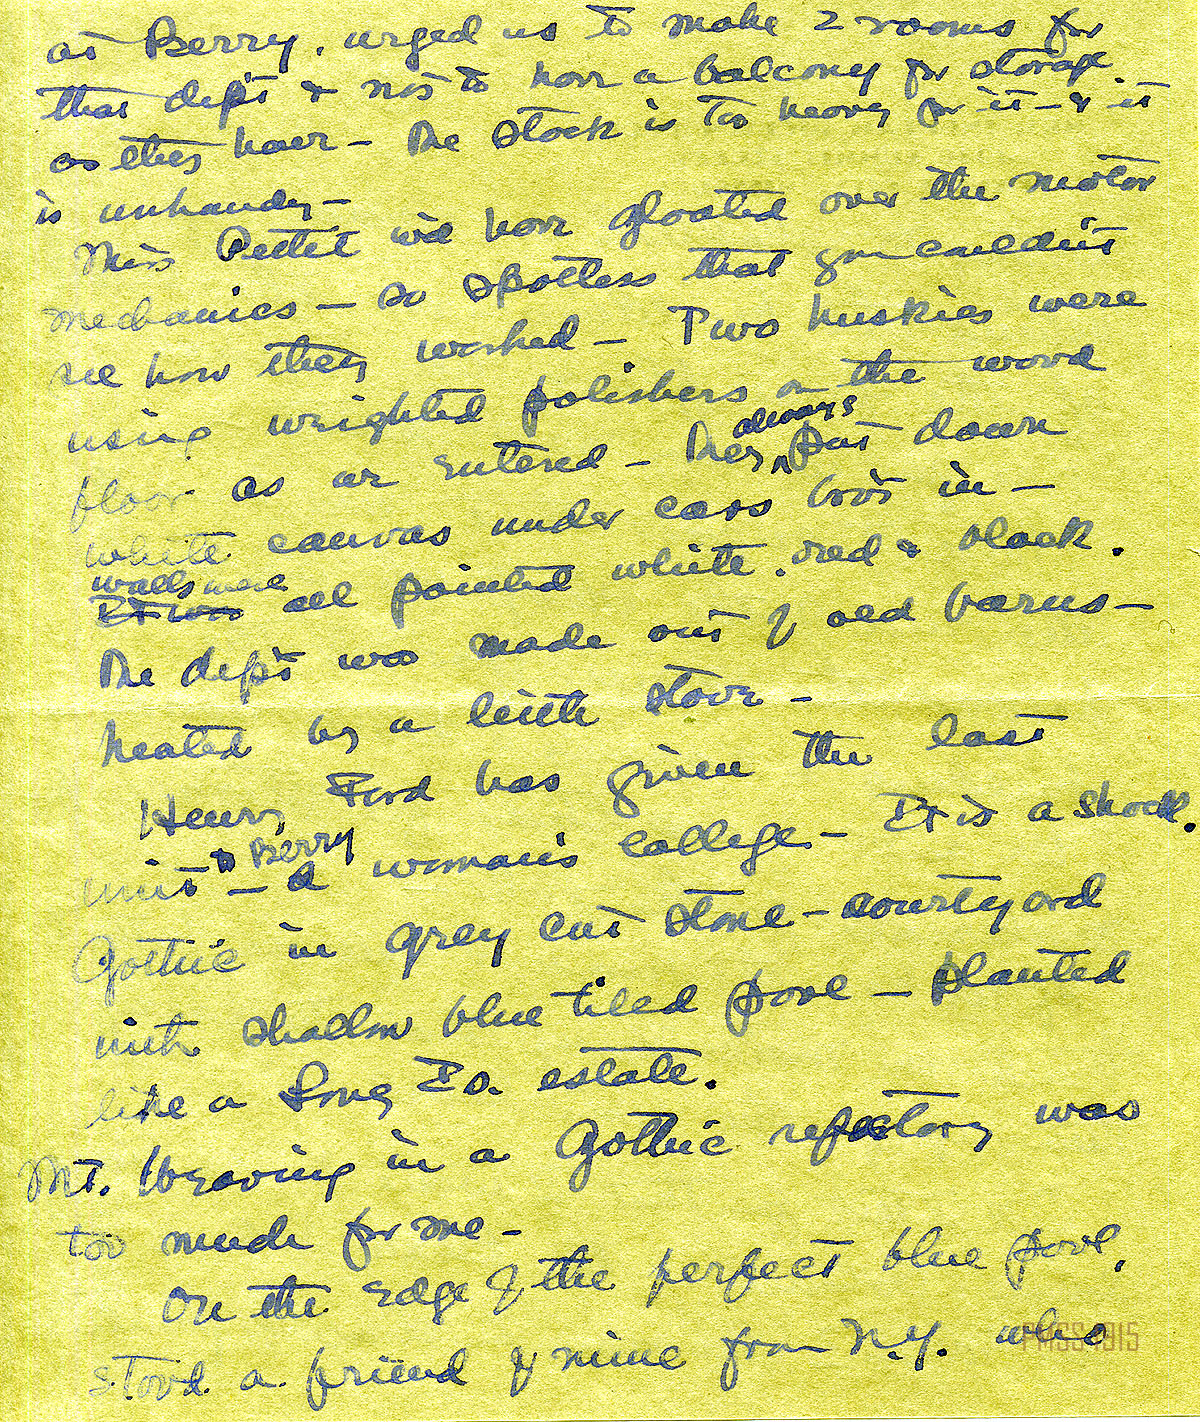 at Berry. urged us to make 2 rooms for
that dep't & not to have a balcony for storage
as they have – The stock is too heavy for it – & it
is unhandy –
Miss Pettet w'd have gloated over the motor
mechanics – so spotless that you couldn't
see how they worked – Two huskies were
using weighted polishers on the wood
floor as we entered – They always put down
white canvas under cars bro't in –
walls were
It was all painted white, red & black.
The dep't was made out of old barns –
heated by a little stove –
Henry Ford has given the last
unit to Berry – a woman's college – It is a shock.
Gothic in grey cut stone – courtyard
with shallow blue tiled pool – planted
like a Long Is. estate.
Mt. Weaving in a Gothic refectory was
too much for me –
On the edge of the perfect blue pool,
stood a friend of mine from N.Y. who
PMSS 1915